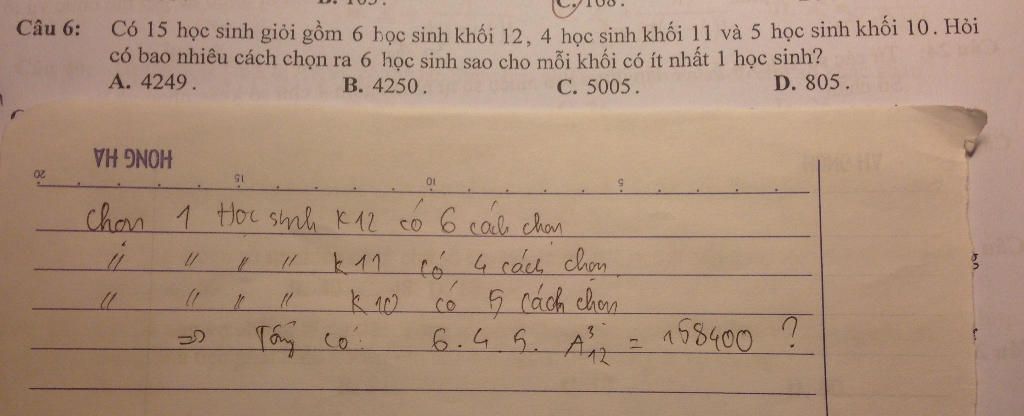 Câu 6: Có 15 học sinh giỏi gồm 6 học sinh khối 12, 4 học sinh khối 11 và 5 học sinh khối 10. Hỏi
có bao nhiêu cách chọn ra 6 học sinh sao cho mỗi khối có ít nhất 1 học sinh?
A. 4249. B. 4250. C. 5005. D. 805.
HONG HA
20 15 10 5
chọn 1 Học sinh K12 có 6 cách chọn
〃 〃 〃 〃 K11 có 4 cách chọn
〃 〃 〃 〃 K10 có 5 cách chọn
=> Tổng có: 6.4.5. A³₁₂ = 158400 ?